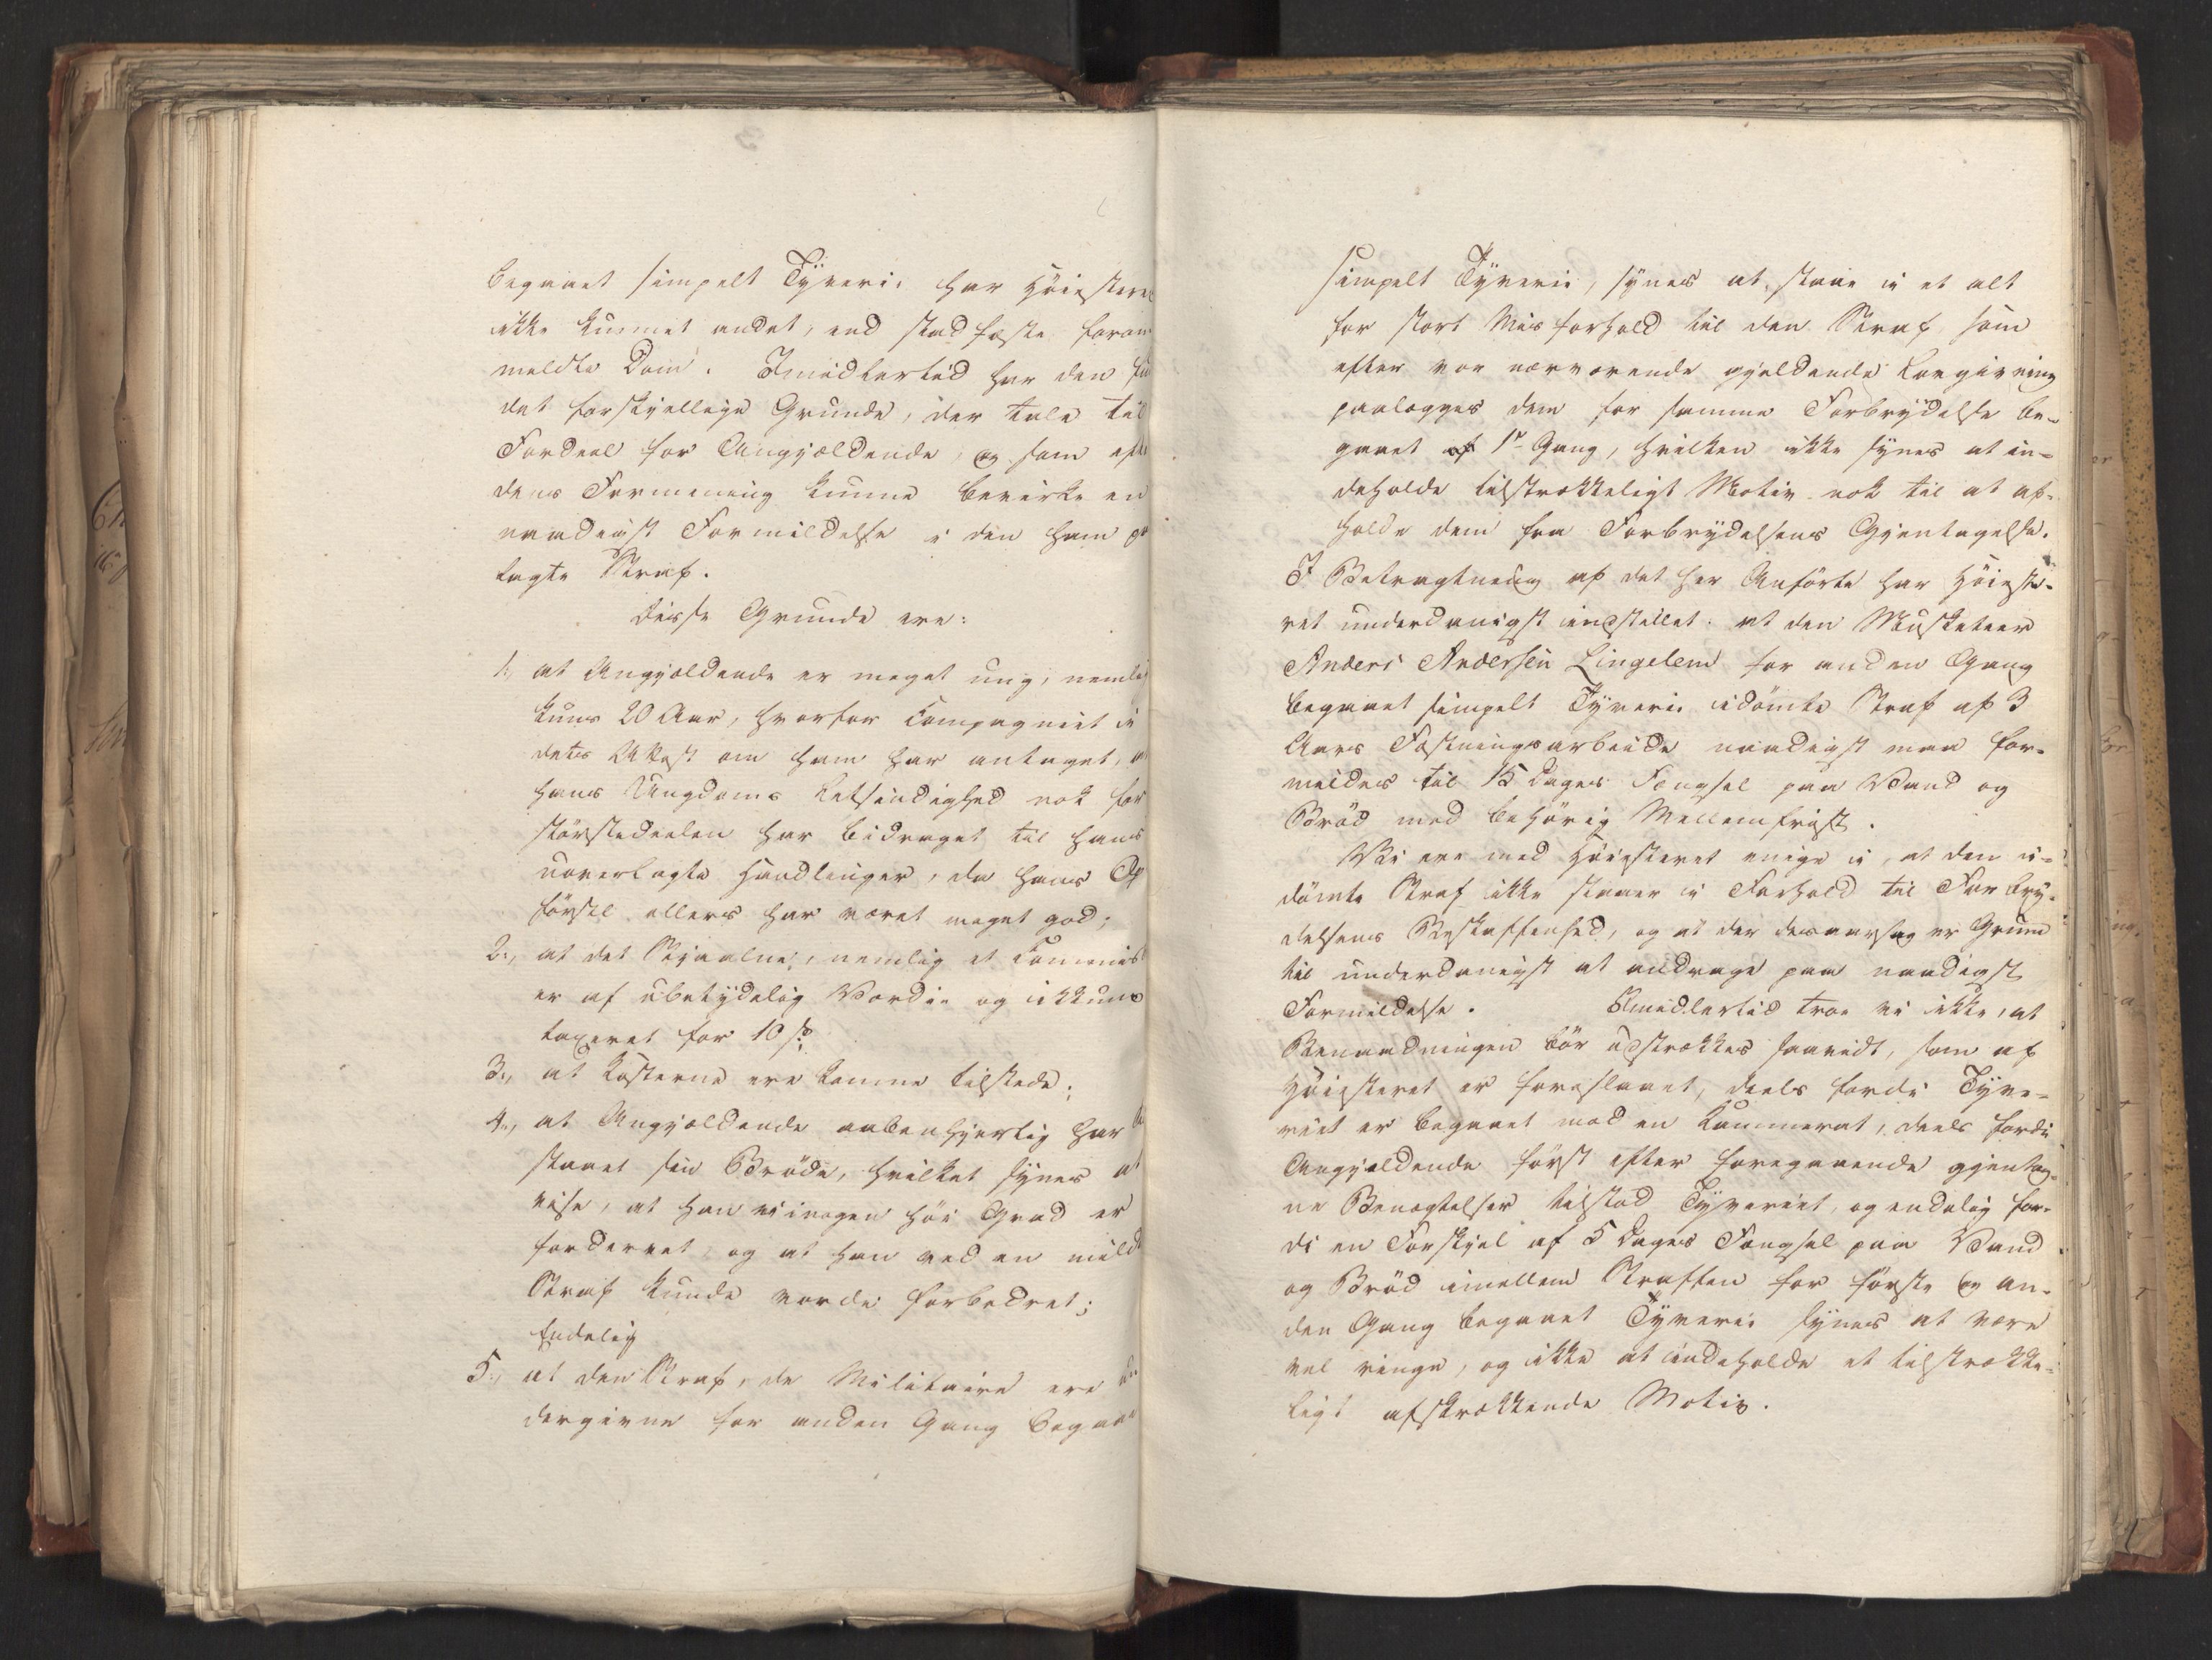 begaaet simpelt Tyverie har Höieste
ikke kunnet andet, end stadfæste foran
meldte Dom. Imidlertid har den fun
det forskjellige Grunde, der tale til
Fordeel for Angjældende, og som efter
dens Formening kunne bevirke en
naadigst Formildelse i den ham
lagte Straf.
Disse Grunde ere:
1:, at Angjældende er meget ung, nemlig
kuns 20 Aar, hvorfor Compagniet i
dets Attest om ham har antaget, at
hans Ungdoms Letsindighed nok for
störstedeelen har bidraget til hans
uoverlagte Handlinger, da hans Op
förstel ellers har været meget god;
2:, at det Stjaalne, nemlig et Commis
er af ubetydelig Værdie og ikkuns
taxeret for 10 s;
3:, at Kosterne ere komne tilstede;
4:, at Angjældende aabenhjertig har be
staaet sin Bröde, hvilket synes at
vise, at han ei i nogen höi Grad er
fordervet, og at han ved en mild
Straf kunde vorde forbedret;
Endelig
5:, at den Straf, de Militaire ere un
dergivne for anden Gang begaaet
simpelt Tyverie, synes at staae i et alt
for stort Misforhold til den Straf som
efter vor nærværende gjeldende Lovgivning
paalægges dem for samme Forbrydelse be-
gaaet af 1ste Gang, hvilken ikke synes at in-
deholde tilstrækkeligt Motiv nok til at af-
holde dem fra Forbrydelsens Gjentagelse.
I Betragtning af det her Anförte har Höieste-
ret underdanigst indstillet: at den Musketeer
Anders Andersen Lingelem for anden Gang
begaaet simpelt Tyverie idömte Straf af 3
Aars Fæstningsarbeide naadigst maa for-
mildes til 15 Dages Fængsel paa Vand og
Bröd med behörig Mellemfrist.
Vi ere med Höiesteret enige i, at den i-
dömte Straf ikke staaer i Forhold til Forbry-
delsens Beskaffenhed, og at der desaarsag er Grund
til underdanigst at andrage paa naadigst
Formildelse. Imidlertid troe vi ikke, at
Benaadningen bör udstrækkes saavidt, som af
Höiesteret er foreslaaet, deels fordi Tyve-
riet er begaaet mod en Kammerat, deels fordi
Angjældende först efter foregaaende gjentag-
ne Benægtelser tilstod Tyveriet, og endelig for-
di en Forskjel af 5 Dages Fængsel paa Vand
og Bröd imellem Straffen for förste og an-
den Gang begaaet Tyverie synes at være
vel ringe, og ikke at indeholde et tilstrække-
ligt afskrækkende Motiv.